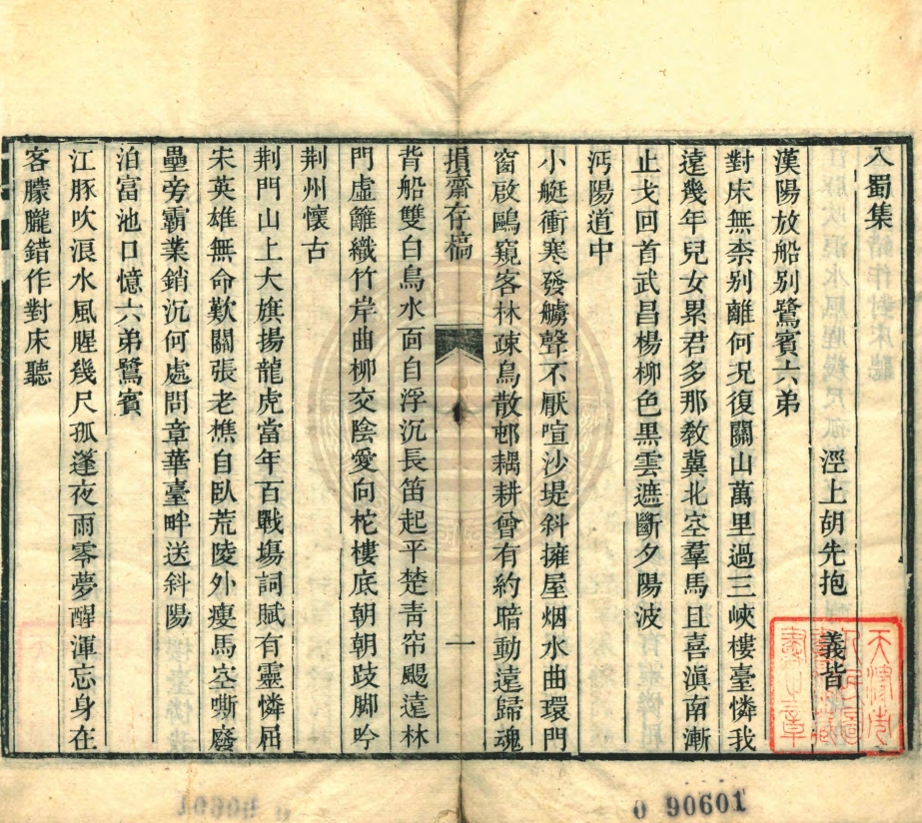 入蜀集
涇上胡先抱　義皆
漢陽放船别鷺賓六弟
對床無柰别離何况復關山萬里過三峽樓臺憐我
遠幾年兒女累君多那敎冀北空羣馬且喜滇南漸
止戈回首武昌楊柳色黑雲遮斷夕陽波
沔陽道中
小艇衝寒發艣聲不厭喧沙堤斜擁屋烟水曲環門
窗啟鷗窺客林疎鳥散邨耦耕曾有約暗動遠歸魂
損齋存稿
一
背船雙白鳥水面自浮沉長笛起平楚靑帘颺遠林
門虛籬織竹岸曲柳交陰愛向柁樓底朝朝跂脚吟
荆州懷古
荆門山上大旗揚龍虎當年百戰塲詞賦有靈憐屈
宋英雄無命歎關張老樵自臥荒陵外瘦馬空嘶廢
壘旁霸業銷沉何處問章華臺畔送斜陽
泊富池口憶六弟鷺賓
江豚吹浪水風腥幾尺孤篷夜雨零夢醒渾忘身在
客朦朧錯作對床聽
0 90601